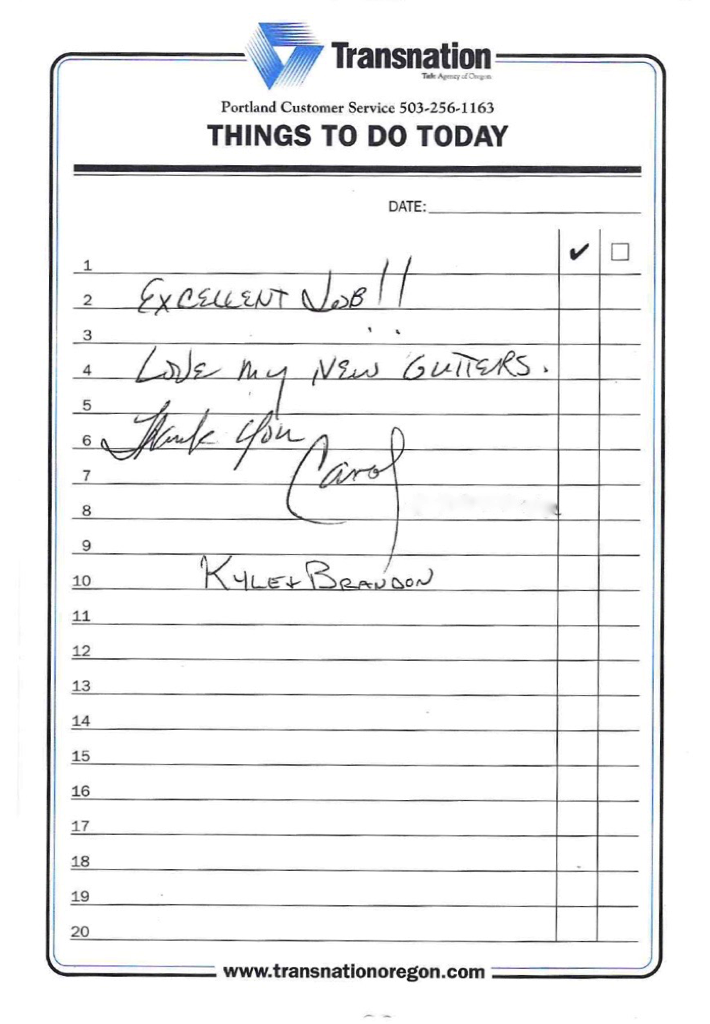 Transnation
Title Agency of Oregon
Portland Customer Service 503-256-1163
THINGS TO DO TODAY
DATE:
✔ ☐
1
2 EXCELLENT JOB!!
3
4 LOVE my NEW GUTTERS.
5
6 Thank you
7 Carol
8
9
10 KYLE + BRANDON
11
12
13
14
15
16
17
18
19
20
www.transnationoregon.com